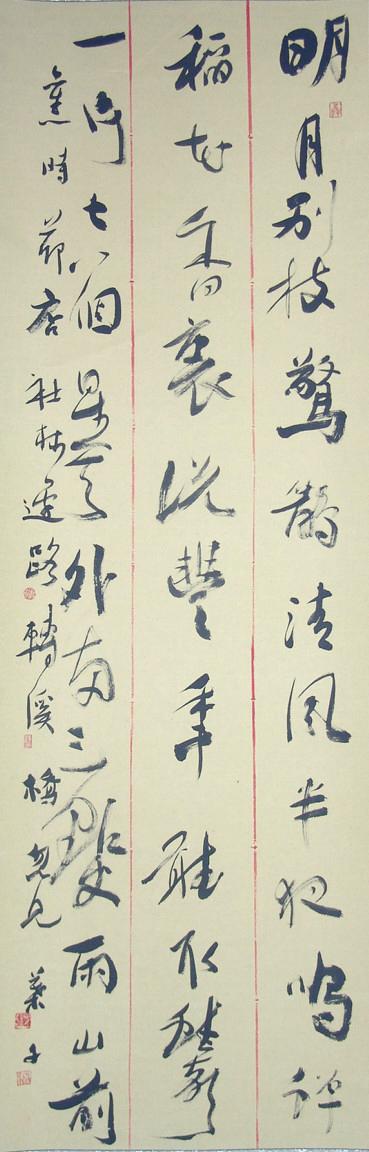 明月別枝驚鵲清風半夜鳴蟬
稻花香裏說豐年聽取蛙聲
一片七八個星天外兩三點雨山前
舊時茆店社林邊路轉溪橋忽見 葉子